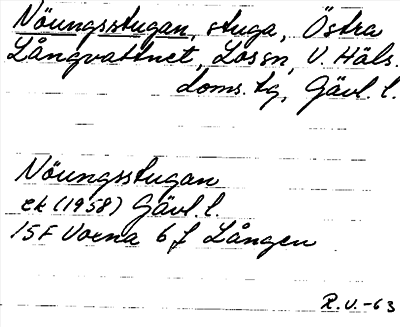 Nöungsstugan, stuga, Östra
Långvattnet, Lossn, V. Häls.
doms. tg, Gävl. l.
Nöungsstugan
ek (1958) Gävl. l.
15F Voxna 6 f Lången
R.V.-63